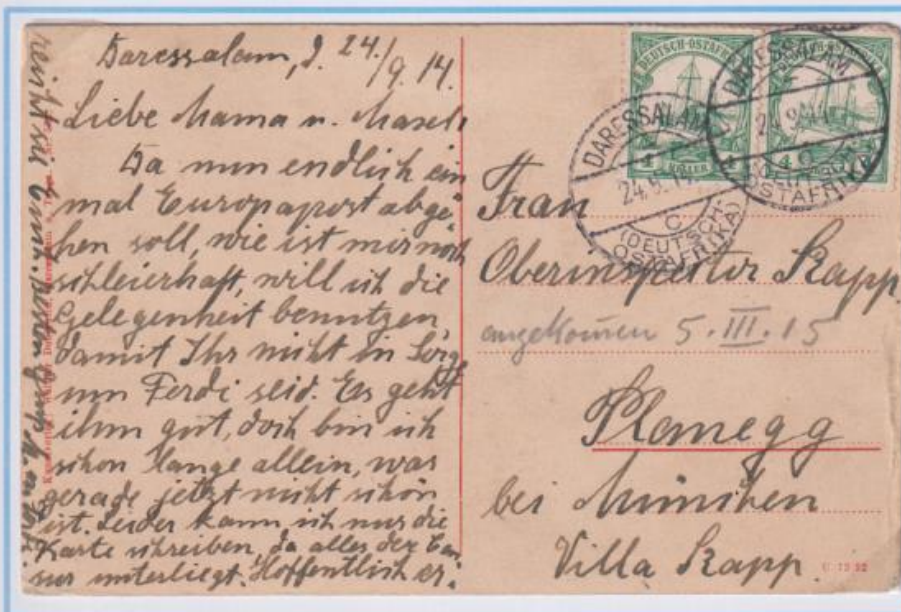 Daressalam, d. 24./9. 14.
Liebe Mama u.
Da nun endlich ein
mal Europapost abge
hen soll, wie ist mir noch
schleierhaft, will ich die
Gelegenheit benutzen,
damit Ihr nicht in Sorge
um Ferdi seid. Es geht
ihm gut, doch bin ich
schon lange allein, was
gerade jetzt nicht schön
ist. Leider kann ich nur die
Karte schreiben, da alles der Cen
sur unterliegt. Hoffentlich er.
DEUTSCH-OSTAFRIKA
4 HELLER 4
DARESSALAM
24.9.14
c
(DEUTSCH-
OSTAFRIKA)
DARESSALAM
24.9.14
c
(DEUTSCH-
OSTAFRIKA)
Frau
Oberinspektor Rapp
angekommen 5. III. 15
Planegg
bei München
Villa Rapp.